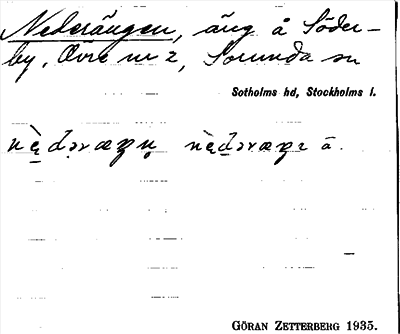 Nederängen, äng å Söder-
by, Övre nr 2, Sorunda sn
Sotholms hd, Stockholms l.
nè̱də̣ræŋn̥ nè̱də̣ræŋə ä.
GÖRAN ZETTERBERG 1935.